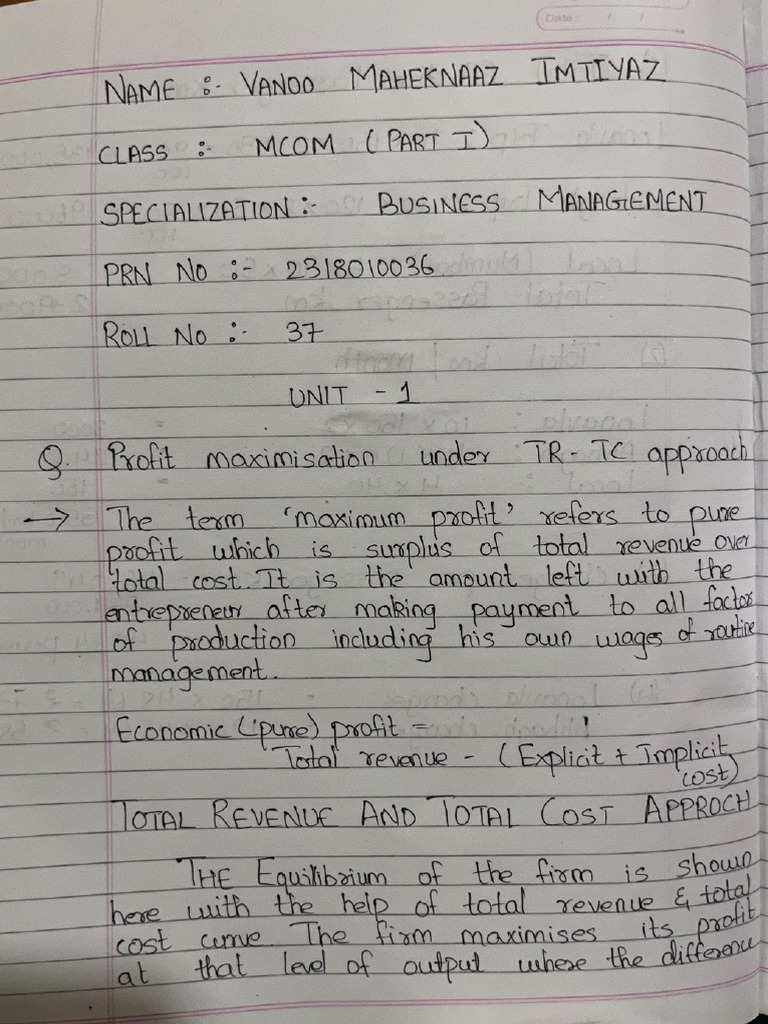 Date : / /
NAME :- VANOO MAHEKNAAZ IMTIYAZ
CLASS :- MCOM (PART I)
SPECIALIZATION :- BUSINESS MANAGEMENT
PRN NO :- 2318010036
ROLL NO :- 37
UNIT - 1
Q. Profit maximisation under TR-TC approach
→ The term 'maximum profit' refers to pure
profit which is surplus of total revenue over
total cost. It is the amount left with the
entrepreneur after making payment to all factor
of production including his own wages of routine
management.
Economic ('pure) profit =
Total revenue - (Explicit + Implicit
cost)
TOTAL REVENUE AND TOTAL COST APPROCH
THE Equilibrium of the firm is shown
here with the help of total revenue & total
cost curve The firm maximises its profit
at that level of output where the difference